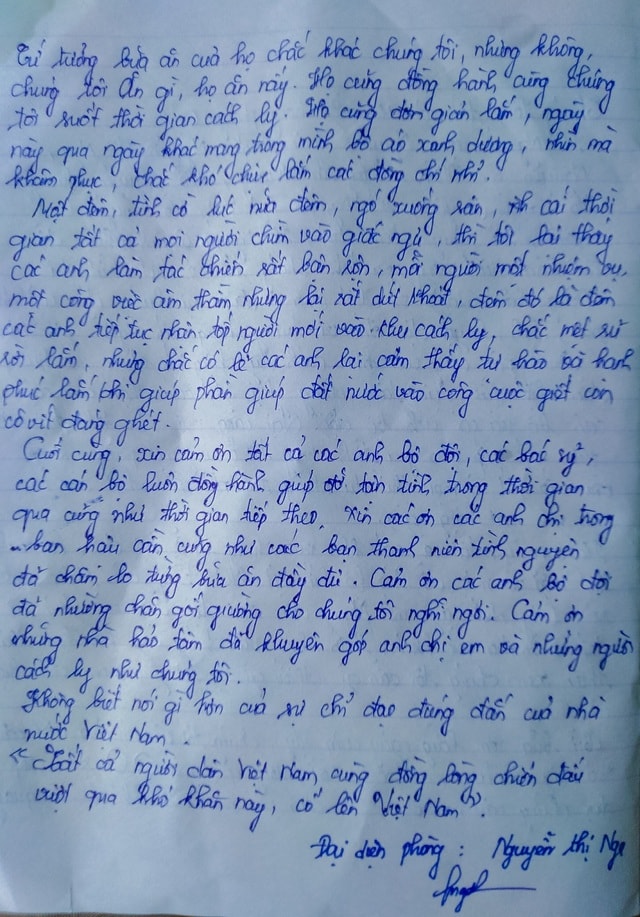 Cứ tưởng bữa ăn của họ chắc khác chúng tôi, nhưng không,
chúng tôi ăn gì, họ ăn nấy. Họ cũng đồng hành cùng chúng
tôi suốt thời gian cách ly. Họ cũng đơn giản lắm, ngày
này qua ngày khác mang trong mình bộ áo xanh dương, nhìn mà
khâm phục, chắc khó chịu lắm các đồng chí nhỉ.
Một đêm, tình cờ lúc nửa đêm, ngó xuống sân, cái thời
gian tất cả mọi người chìm vào giấc ngủ, thì tôi lại thấy
các anh làm tác chiến rất bận rộn, mỗi người một nhiệm vụ,
một công việc âm thầm nhưng lại rất dứt khoát, đêm đó là đêm
các anh tiếp tục nhận tốp người mới vào khu cách ly, chắc mệt sứ
rồi lắm, nhưng chắc có lẽ các anh lại cảm thấy tự hào và hạnh
phúc lắm khi giúp phần giúp đất nước vào công cuộc giết con
cô vít đáng ghét.
Cuối cùng, xin cảm ơn tất cả các anh bộ đội, các bác sỹ,
các cán bộ luôn đồng hành giúp đỡ tận tình trong thời gian
qua cũng như thời gian tiếp theo, xin các ơn các anh chị trong
ban hậu cần cũng như các bạn thanh niên tình nguyện
đã chăm lo từng bữa ăn đầy đủ. Cảm ơn các anh bộ đội
đã nhường chăn gối giường cho chúng tôi nghỉ ngơi. Cảm ơn
những nhà hảo tâm đã khuyên góp anh chị em và những người
cách ly như chúng tôi.
Không biết nói gì hơn của sự chỉ đạo đúng đắn của nhà
nước Việt Nam.
"Tất cả người dân Việt Nam cùng đồng lòng chiến đấu
vượt qua khó khăn này, cố lên Việt Nam".
Đại diện phòng: Nguyễn Thị Nga